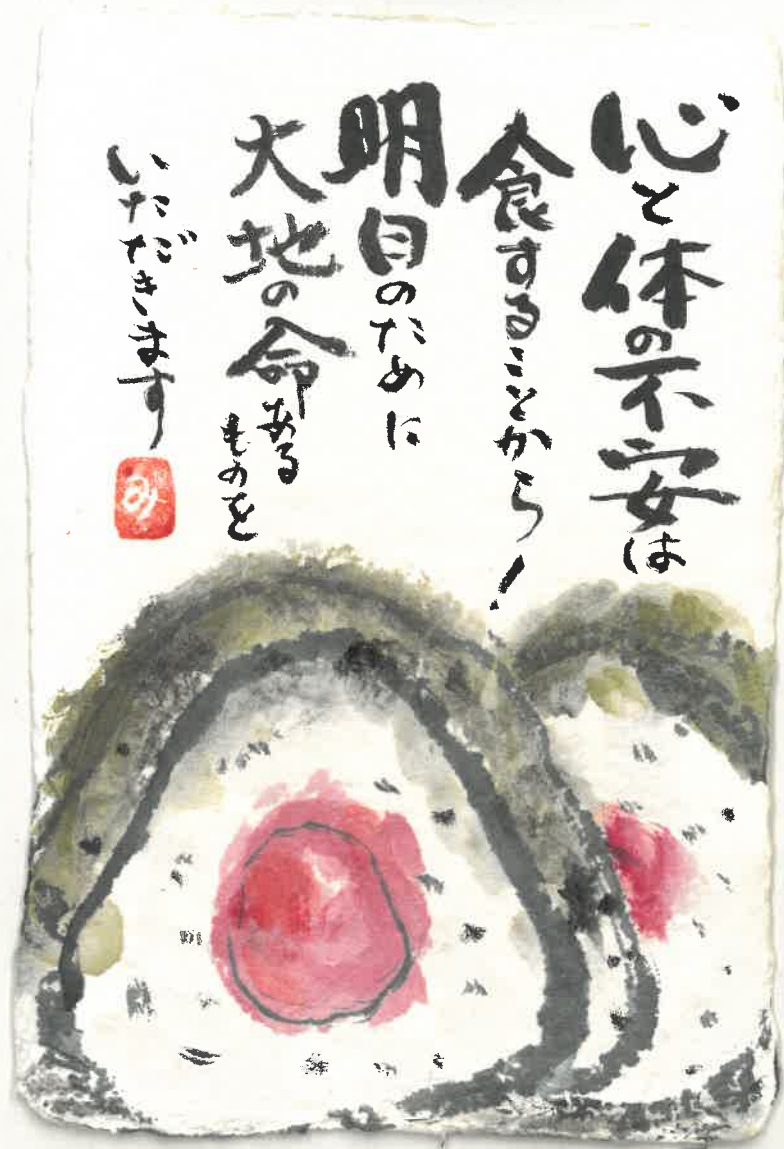 心と体の不安は
食することから!
明日のために
大地の命ある
ものを
いただきます
み